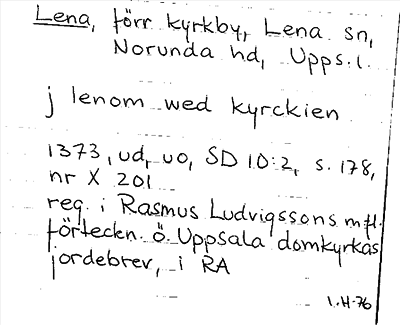 Lena, förr kyrkby, Lena sn,
Norunda hd, Upps. l.
j lenom wed kyrckien
1373, ud, uo, SD 10:2, s. 178,
nr X 201
reg. i Rasmus Ludvigssons m fl.
förteckn. ö. Uppsala domkyrkas
jordebrev, i RA
1.H-76